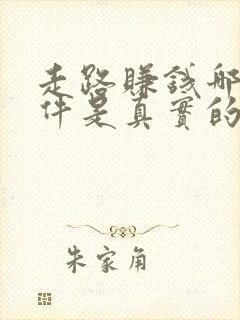 走路賺錢哪
件是真實的
朱家角